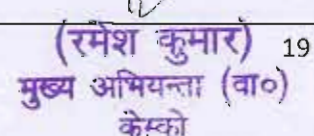 (रमेश कुमार) 19
मुख्य अभियन्ता (वा०)
केस्को